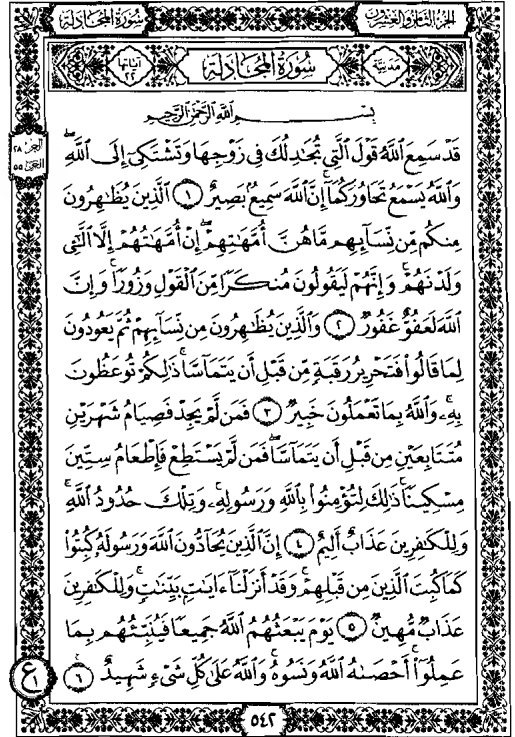 سُورَةُ المُجَادلَة
الجُزءُ الثَّامِنُ وَالعِشْرُون
آيَاتُهَا ٢٢
سُورَةُ المُجَادلَة
مَدَنِيَّة
بِسْمِ اللَّهِ الرَّحْمَٰنِ الرَّحِيمِ
قَدْ سَمِعَ ٱللَّهُ قَوْلَ ٱلَّتِى تُجَٰدِلُكَ فِى زَوْجِهَا وَتَشْتَكِىٓ إِلَى ٱللَّهِ
وَٱللَّهُ يَسْمَعُ تَحَاوُرَكُمَآ إِنَّ ٱللَّهَ سَمِيعٌۢ بَصِيرٌ ١ ٱلَّذِينَ يُظَٰهِرُونَ
مِنكُم مِّن نِّسَآئِهِم مَّا هُنَّ أُمَّهَٰتِهِمْ إِنْ أُمَّهَٰتُهُمْ إِلَّا ٱلَّٰٓـِٔى
وَلَدْنَهُمْ وَإِنَّهُمْ لَيَقُولُونَ مُنكَرًا مِّنَ ٱلْقَوْلِ وَزُورًا وَإِنَّ
ٱللَّهَ لَعَفُوٌّ غَفُورٌ ٢ وَٱلَّذِينَ يُظَٰهِرُونَ مِن نِّسَآئِهِمْ ثُمَّ يَعُودُونَ
لِمَا قَالُوا۟ فَتَحْرِيرُ رَقَبَةٍ مِّن قَبْلِ أَن يَتَمَآسَّا ذَٰلِكُمْ تُوعَظُونَ
بِهِۦ وَٱللَّهُ بِمَا تَعْمَلُونَ خَبِيرٌ ٣ فَمَن لَّمْ يَجِدْ فَصِيَامُ شَهْرَيْنِ
مُتَتَابِعَيْنِ مِن قَبْلِ أَن يَتَمَآسَّا فَمَن لَّمْ يَسْتَطِعْ فَإِطْعَامُ سِتِّينَ
مِسْكِينًا ذَٰلِكَ لِتُؤْمِنُوا۟ بِٱللَّهِ وَرَسُولِهِۦ وَتِلْكَ حُدُودُ ٱللَّهِ
وَلِلْكَٰفِرِينَ عَذَابٌ أَلِيمٌ ٤ إِنَّ ٱلَّذِينَ يُحَآدُّونَ ٱللَّهَ وَرَسُولَهُۥ كُبِتُوا۟
كَمَا كُبِتَ ٱلَّذِينَ مِن قَبْلِهِمْ وَقَدْ أَنزَلْنَآ ءَايَٰتٍۭ بَيِّنَٰتٍ وَلِلْكَٰفِرِينَ
عَذَابٌ مُّهِينٌ ٥ يَوْمَ يَبْعَثُهُمُ ٱللَّهُ جَمِيعًا فَيُنَبِّئُهُم بِمَا
عَمِلُوٓا۟ أَحْصَىٰهُ ٱللَّهُ وَنَسُوهُ وَٱللَّهُ عَلَىٰ كُلِّ شَىْءٍ شَهِيدٌ ٦
الجزء ٢٨
الحزب ٥٥
ع ١
٥٤٢